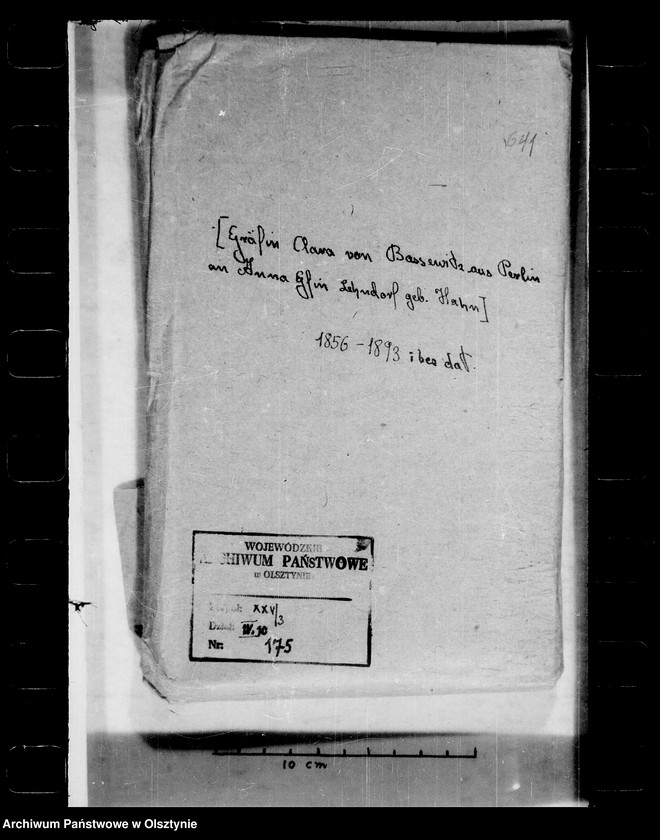 641
[Gräfin Clara von Bassewitz aus Perlin
an Anna Gfin Lehndorf geb. Hahn]
1856-1893 i bez dat.
WOJEWÓDZKIE
ARCHIWUM PAŃSTWOWE
w OLSZTYNIE
Zespół: XXV/3
Dział: IV.30
Nr: 175
10 cm
Archiwum Państwowe w Olsztynie